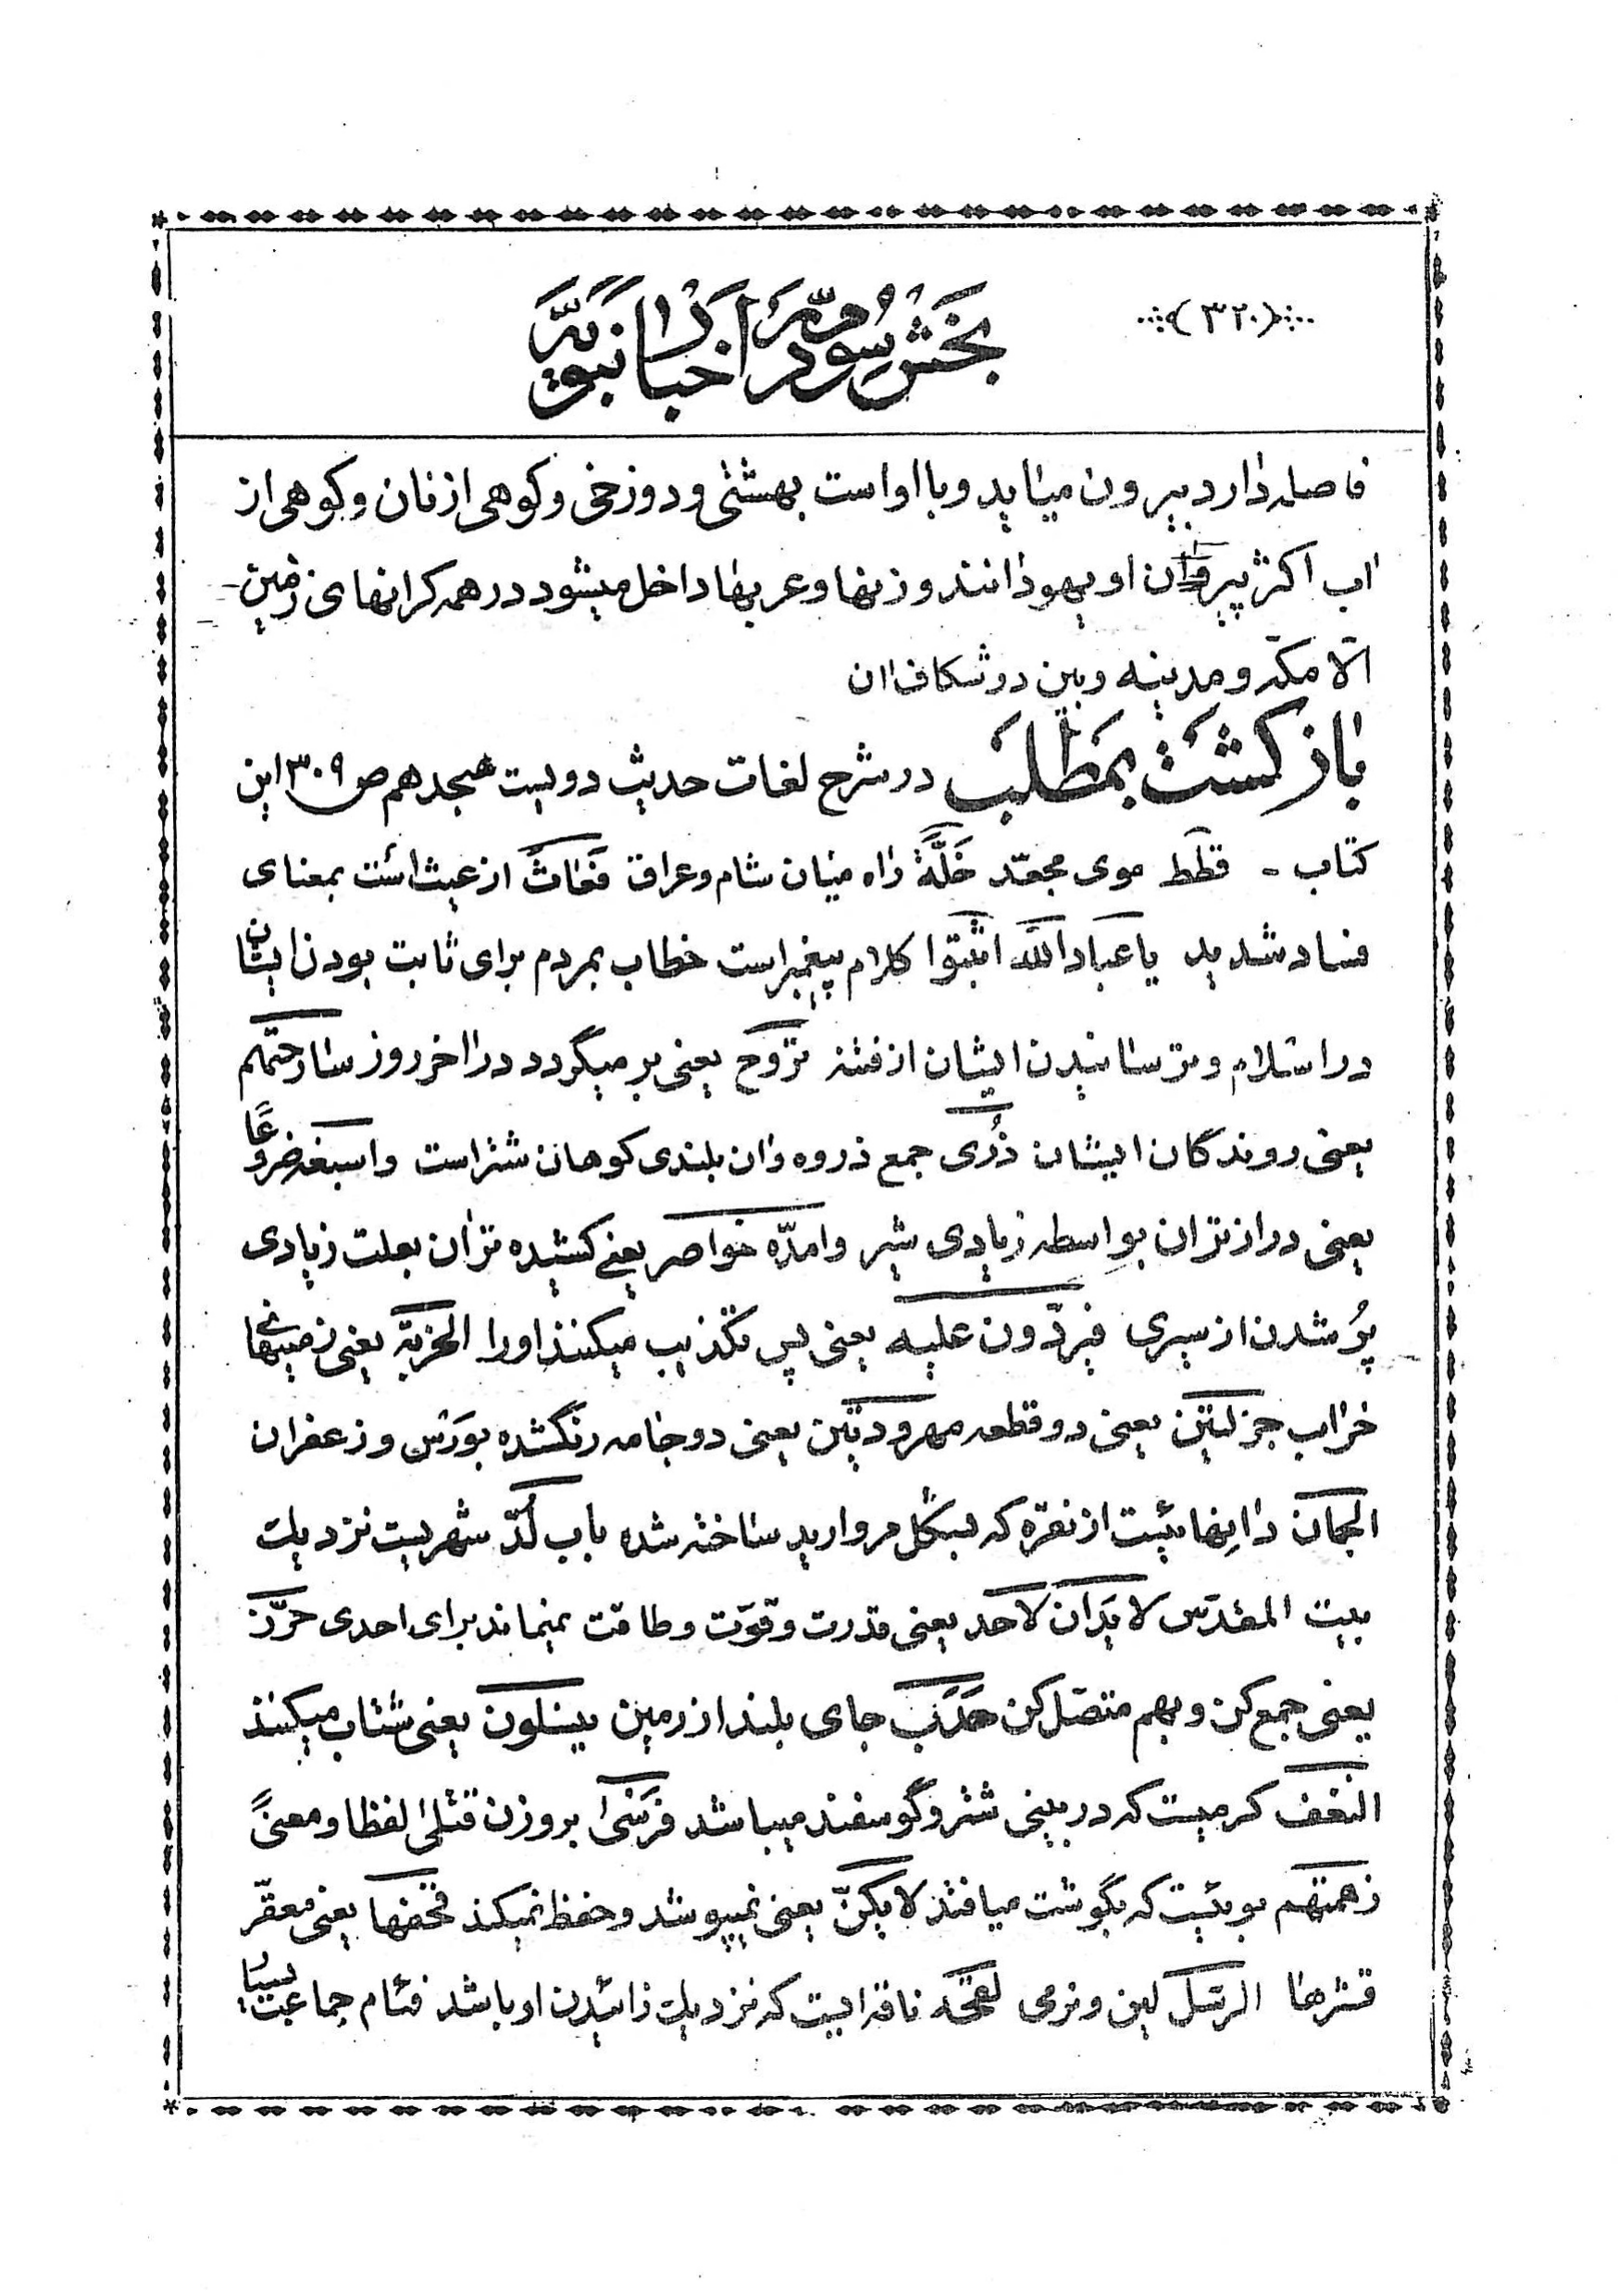 (۳۲۰)
بخش سوّم در اخبار نبویّه
فاصله دارد بیرون میآید و با او است بهشتی و دوزخی و کوهی از نان و کوهی از
اب اکثر پیروان او یهودانند و زنها و عربها داخل میشود در همه کرانهای زمین
الّا مکّه و مدینه و بین دو شکاف ان
بازگشت بمطلب در شرح لغات حدیث دویست هیجدهم ص ۳۰۹ این
کتاب - قطط موی مجعّد خَلَّة راه میان شام و عراق فَعٰاثَ از عیث است بمعنای
فساد شدید یا عباد اللّه اثبتوا کلام پیغمبر است خطاب بمردم برای ثابت بودن ایشان
در اسلام و ترسانیدن ایشان از فتنه تروح یعنی بر میگردد در اخر روز سارحتهم
یعنی روندگان ایشان ذُری جمع ذروه و ان بلندی کوهان شتر است واسبغه ضروعًا
یعنی درازتر ان بواسطه زیادی شیر وامدّه خواصر یعنی کشیده تر ان بعلت زیادی
پُر شدن از سیری فیردّون علیه یعنی پس تکذیب میکنند او را الخربة یعنی زمینهای
خراب جزلتین یعنی دو قطعه مهرودتین یعنی دو جامه رنگشده بورس و زعفران
الجمان دانهائیست از نقره که بشکل مروارید ساخته شده باب لُدّ شهریست نزدیک
بیت المقدّس لا یدان لاحد یعنی قدرت و قوّت و طاقت نمیماند برای احدی حرّز
یعنی جمع کن و بهم متصّل کن حَدَب جای بلند از زمین ینسلون یعنی شتاب میکنند
النغف کرمیست که در بینی شتر و گوسفند میباشد فَرسٰی بر وزن قتلیٰ لفظا و معنیً
زهمتهم بوئیست که بگوشت میافتد لا یکنّ یعنی نمیپوشد و حفظ نمیکند قحفها یعنی مقعّر
قشرها الرّسل لبن و نرمی لقحه ناقه ایست که نزدیک زائیدن او باشد فئام جماعت بسیار